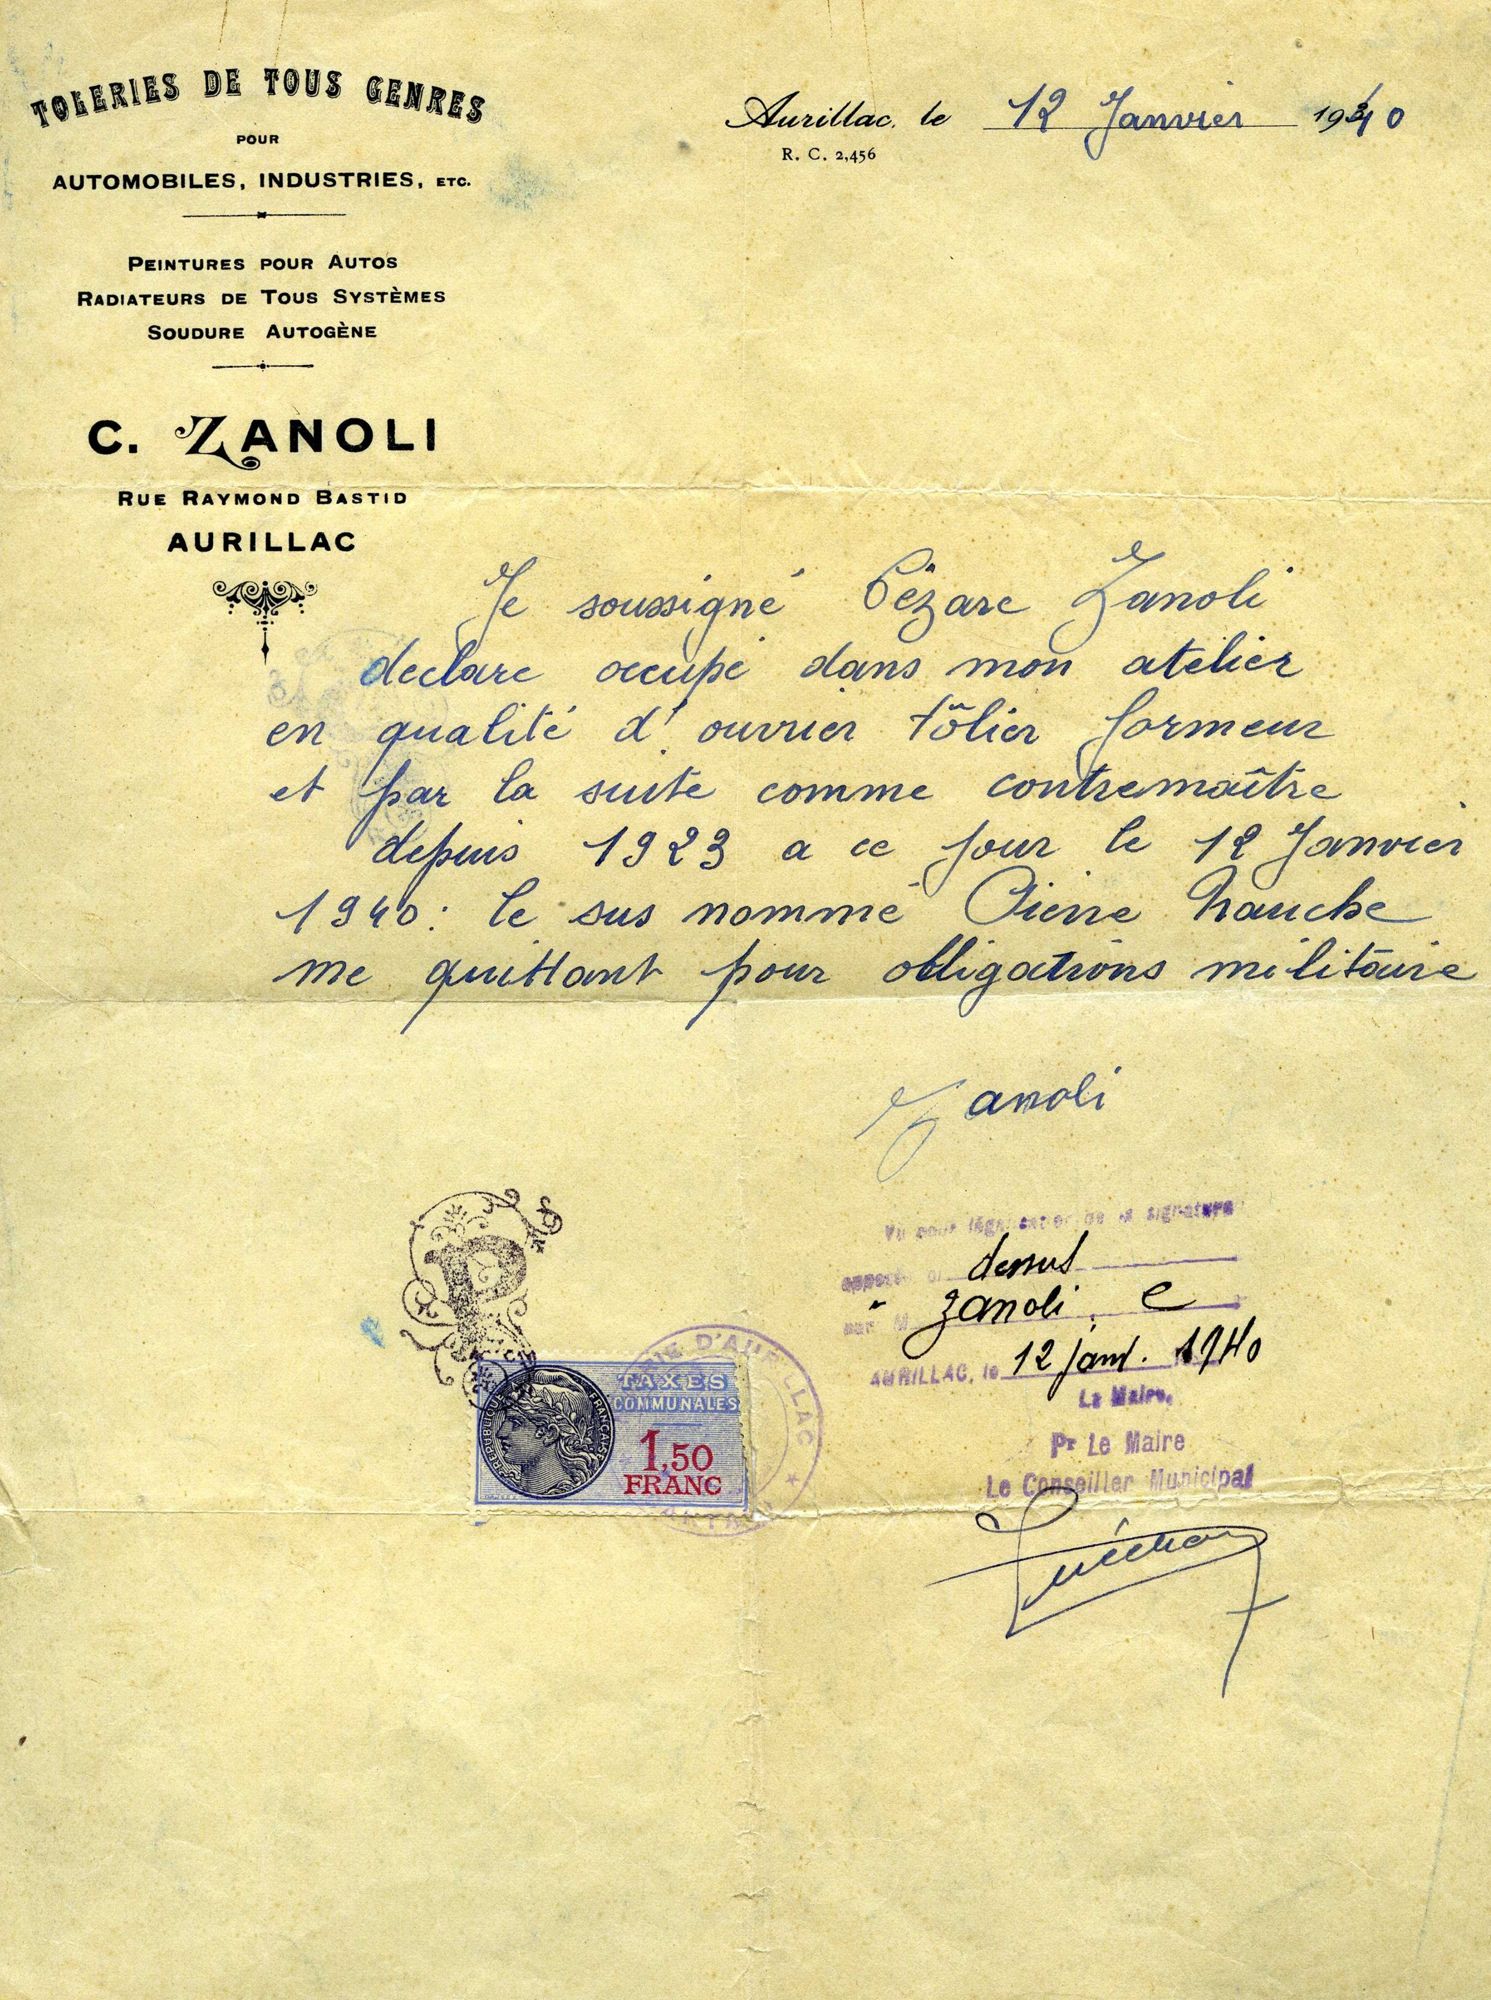 TOLERIES DE TOUS GENRES
POUR
AUTOMOBILES, INDUSTRIES, ETC.
PEINTURES POUR AUTOS
RADIATEURS DE TOUS SYSTÈMES
SOUDURE AUTOGÈNE
C. ZANOLI
RUE RAYMOND BASTID
AURILLAC
Aurillac, le 12 Janvier 1940
R. C. 2,456
Je soussigné Cézare Zanoli
declare occupé dans mon atelier
en qualité d'ouvrier tôlier formeur
et par la suite comme contremaître
depuis 1923 a ce jour le 12 Janvier
1940: le sus nommé Pierre
me quittant pour obligations militaire
Zanoli
Vu pour légalisation de la signature
apposée ci dessus
par M Zanoli. C
AURILLAC, le 12 janv. 1940
Le Maire,
Pr Le Maire
Le Conseiller Municipal
MAIRIE D'AURILLAC
CANTAL
RÉPUBLIQUE FRANÇAISE
TAXES
COMMUNALES
1,50
FRANC